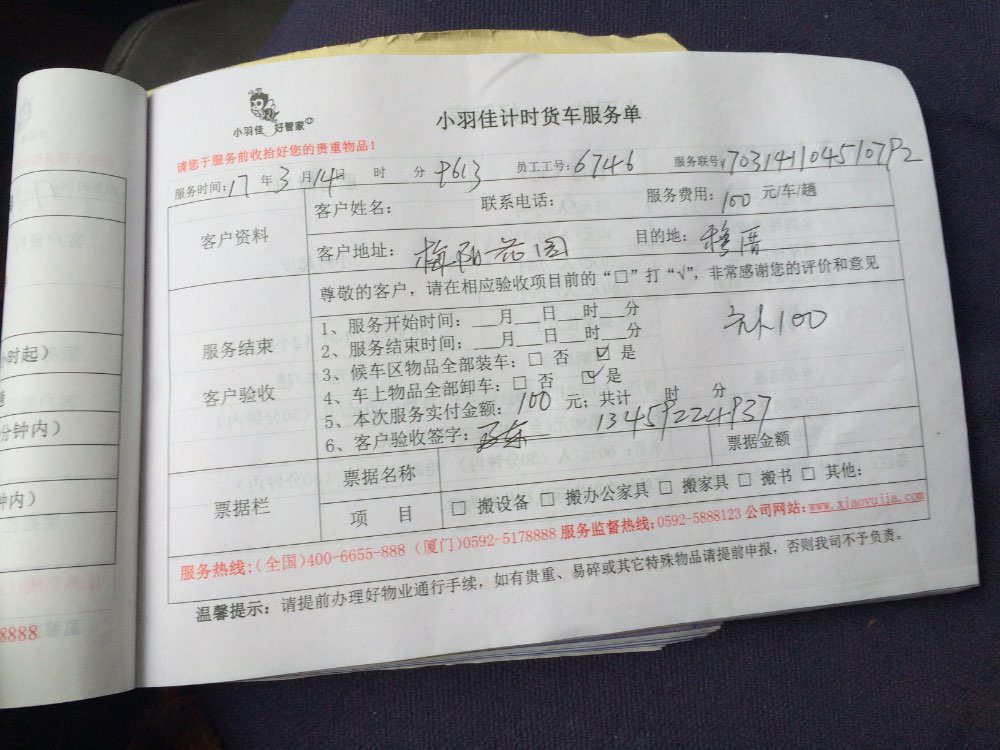 小羽佳 好管家
小羽佳计时货车服务单
请您于服务前收拾好您的贵重物品！
服务时间：17年3月14日 时 分 9613 员工工号：6746 服务联号：703141104510792
客户资料
客户姓名： 联系电话： 服务费用：100元/车/趟
客户地址：梅阳花园 目的地：穆厝
尊敬的客户，请在相应验收项目前的“□”打“√”，非常感谢您的评价和意见
服务结束
客户验收
1、服务开始时间：___月___日___时___分
2、服务结束时间：___月___日___时___分
3、候车区物品全部装车：□ 否 ☑ 是
4、车上物品全部卸车：□ 否 ☑ 是
5、本次服务实付金额：100元；共计 时 分
6、客户验收签字： 13459224937
补100
票据栏
票据名称 票据金额
项 目 □ 搬设备 □ 搬办公家具 □ 搬家具 □ 搬书 □ 其他：
服务热线：（全国）400-6655-888（厦门）0592-5178888 服务监督热线：0592-5888123 公司网站：www.xiaoyujia.com
温馨提示：请提前办理好物业通行手续，如有贵重、易碎或其它特殊物品请提前申报，否则我司不予负责。
小时起）
分钟内）
钟内）
8888